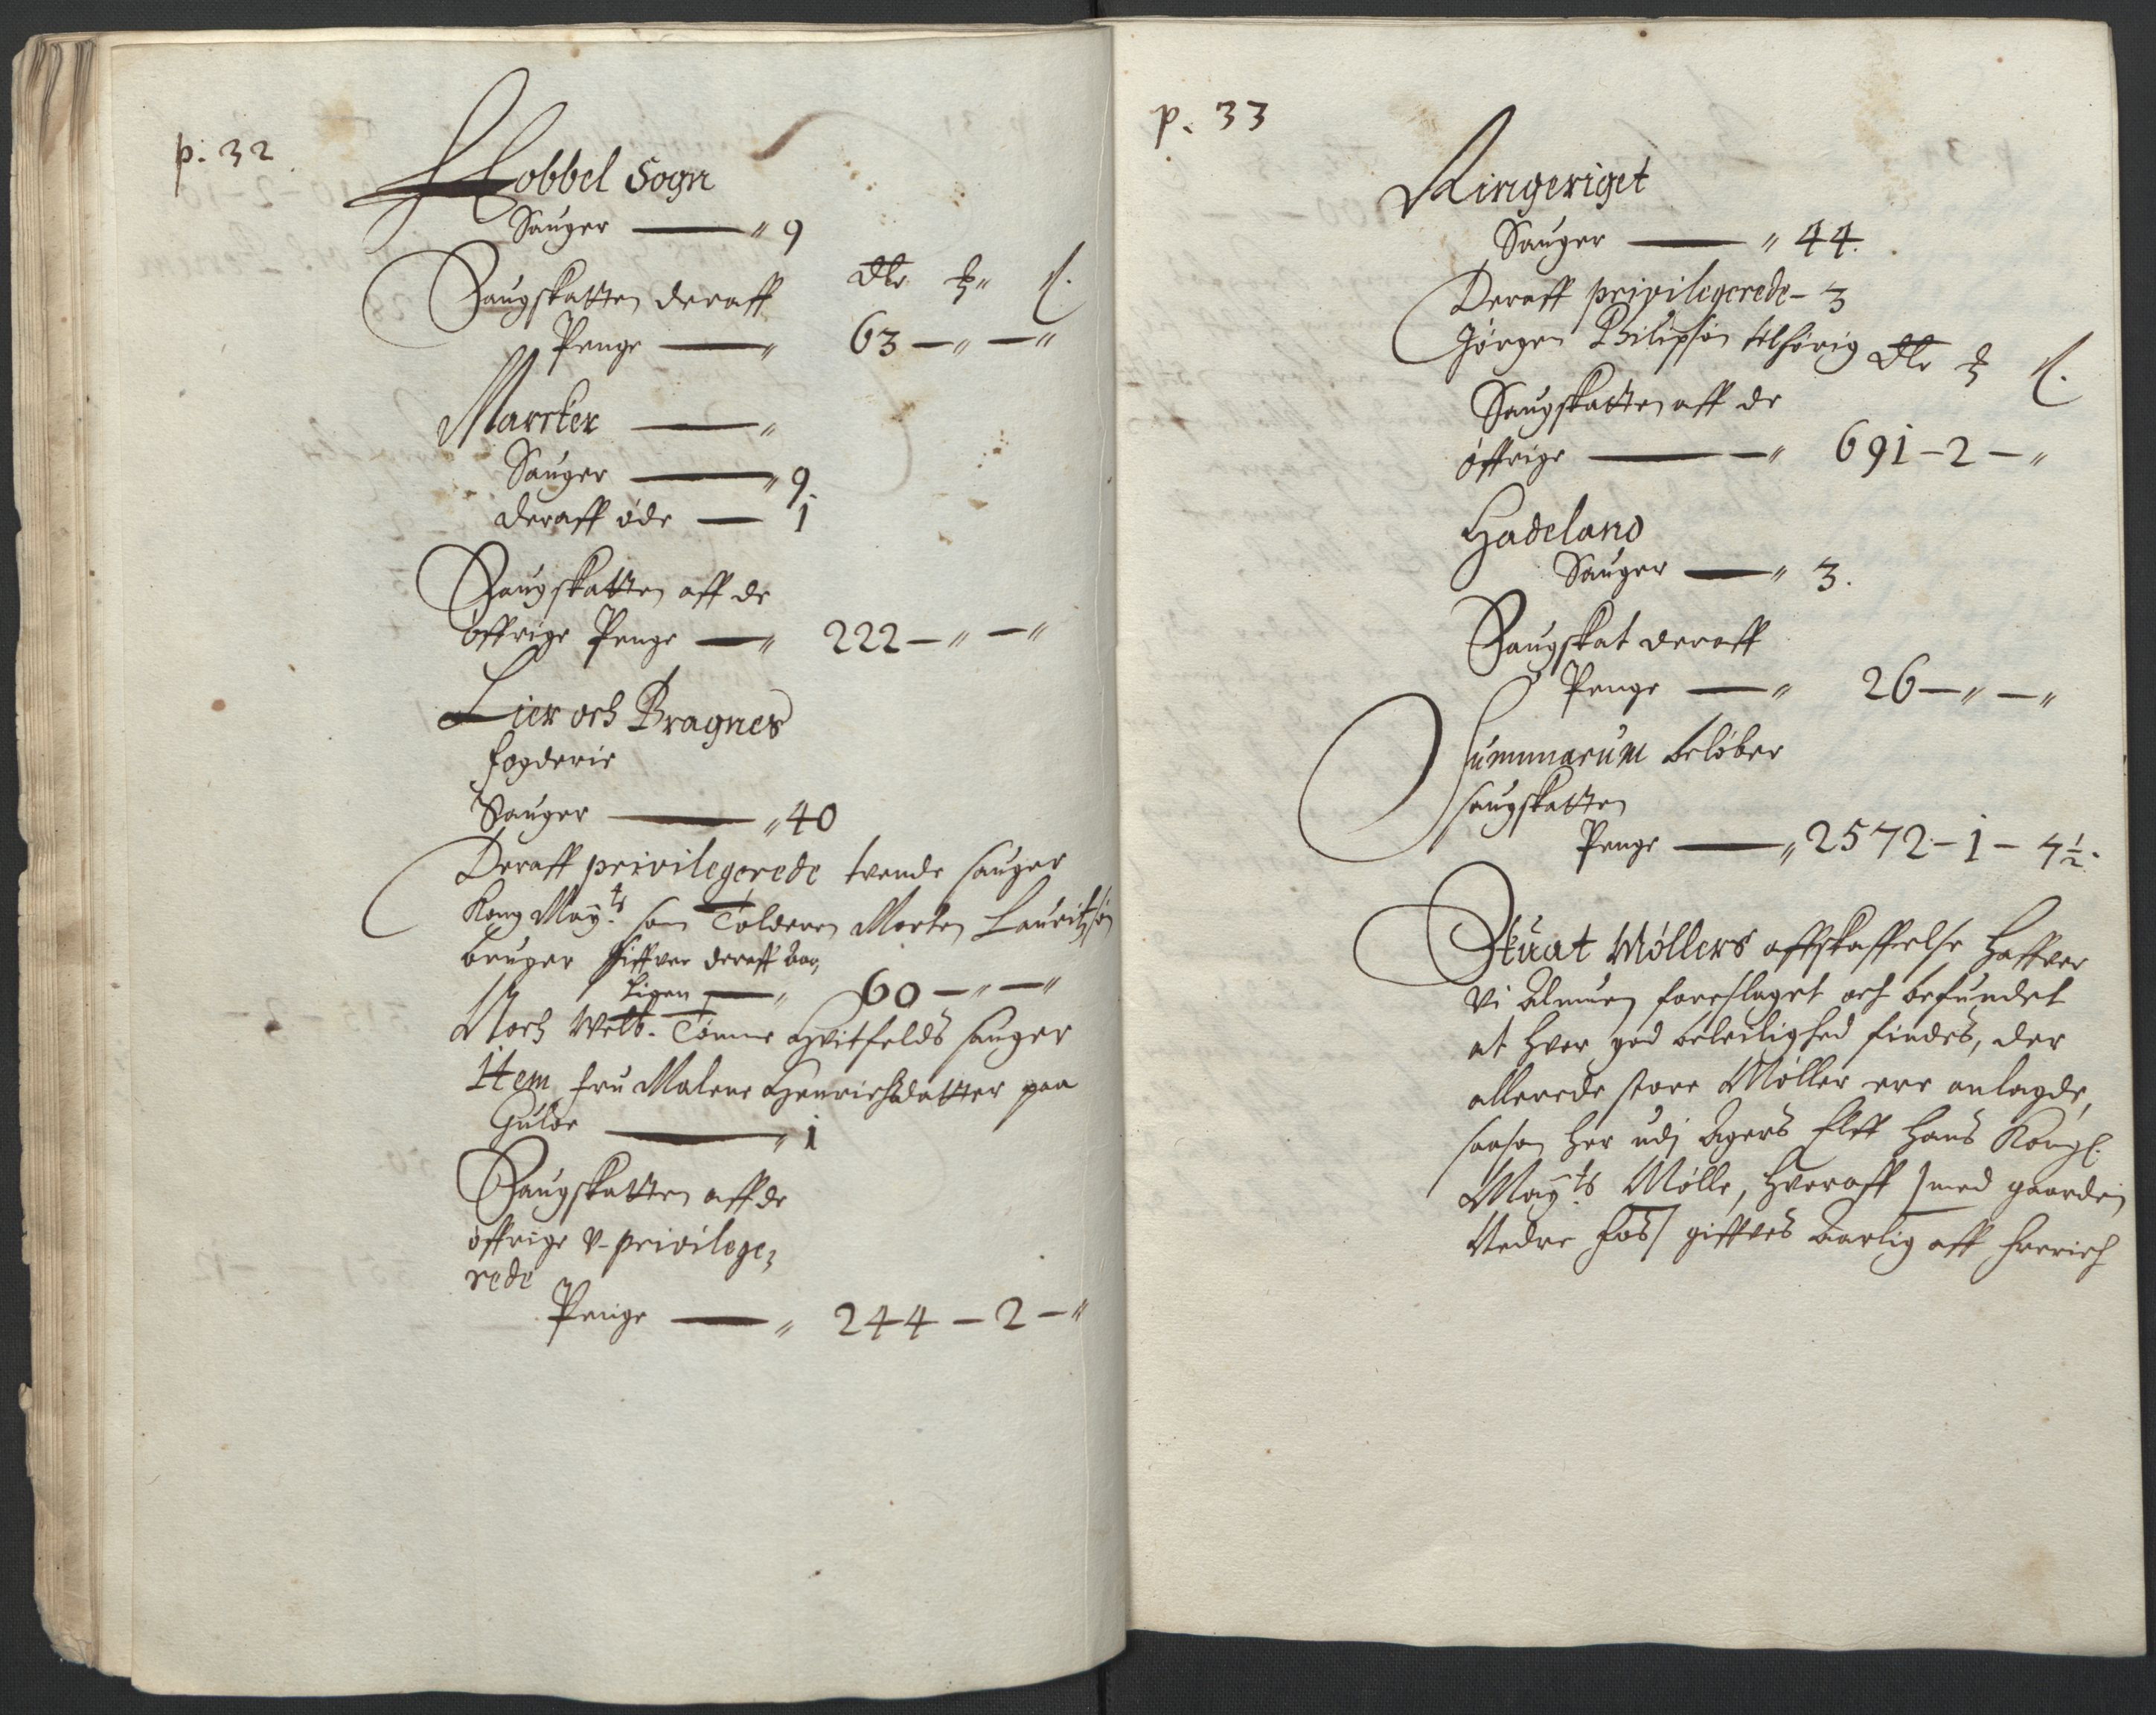 p. 32
Hobbel Sogn
Sauger — " 9
Saugskatten deraff Dlr ß
Penge — " 63 — " — "
Marcker — "
Sauger — " 9
deraff øde — 1
Saugskatten aff de
öffrige Penge — " 222 — " — "
Lier och Bragnes
fogderie
Sauger — " 40
Deraff privilegerede tvende sauger
Kong May:ts som Tolderen Morten Lauritzsøn
bruger giffver deraff
60 — " — "
Noch Welb. Tønne Hvitfelds sauger
Item fru Malene Henrichsdatter paa
— " 1
Saugskatten aff de
öffrige v-privilege
rede
Penge — " 244 — 2 — "
p. 33
Ringeriget
Sauger — " 44.
Deraff privilegerede — 3
Jörgen Philipsøn tilhörig Dlr ß
Saugskatten aff de
öffrige — — " 691 — 2 — "
Hadeland
Sauger — " 3.
Saugskat deraff
Penge — " 26 — " — "
Summarum belöber
saugskatten
Penge — " 2572 — 1 — 4 1/2.
Skuat Møllers affskaffelse haffver
vi Almuen foreslaget och befundet
at hvor god beleilighed findes, der
allerede store Møller ere anlagde,
saasom her udj Agers Elff Hans Kongl.
May:ts Mølle, hveraff / med gaarden
Nedre Fos / giffves Aarlig aff